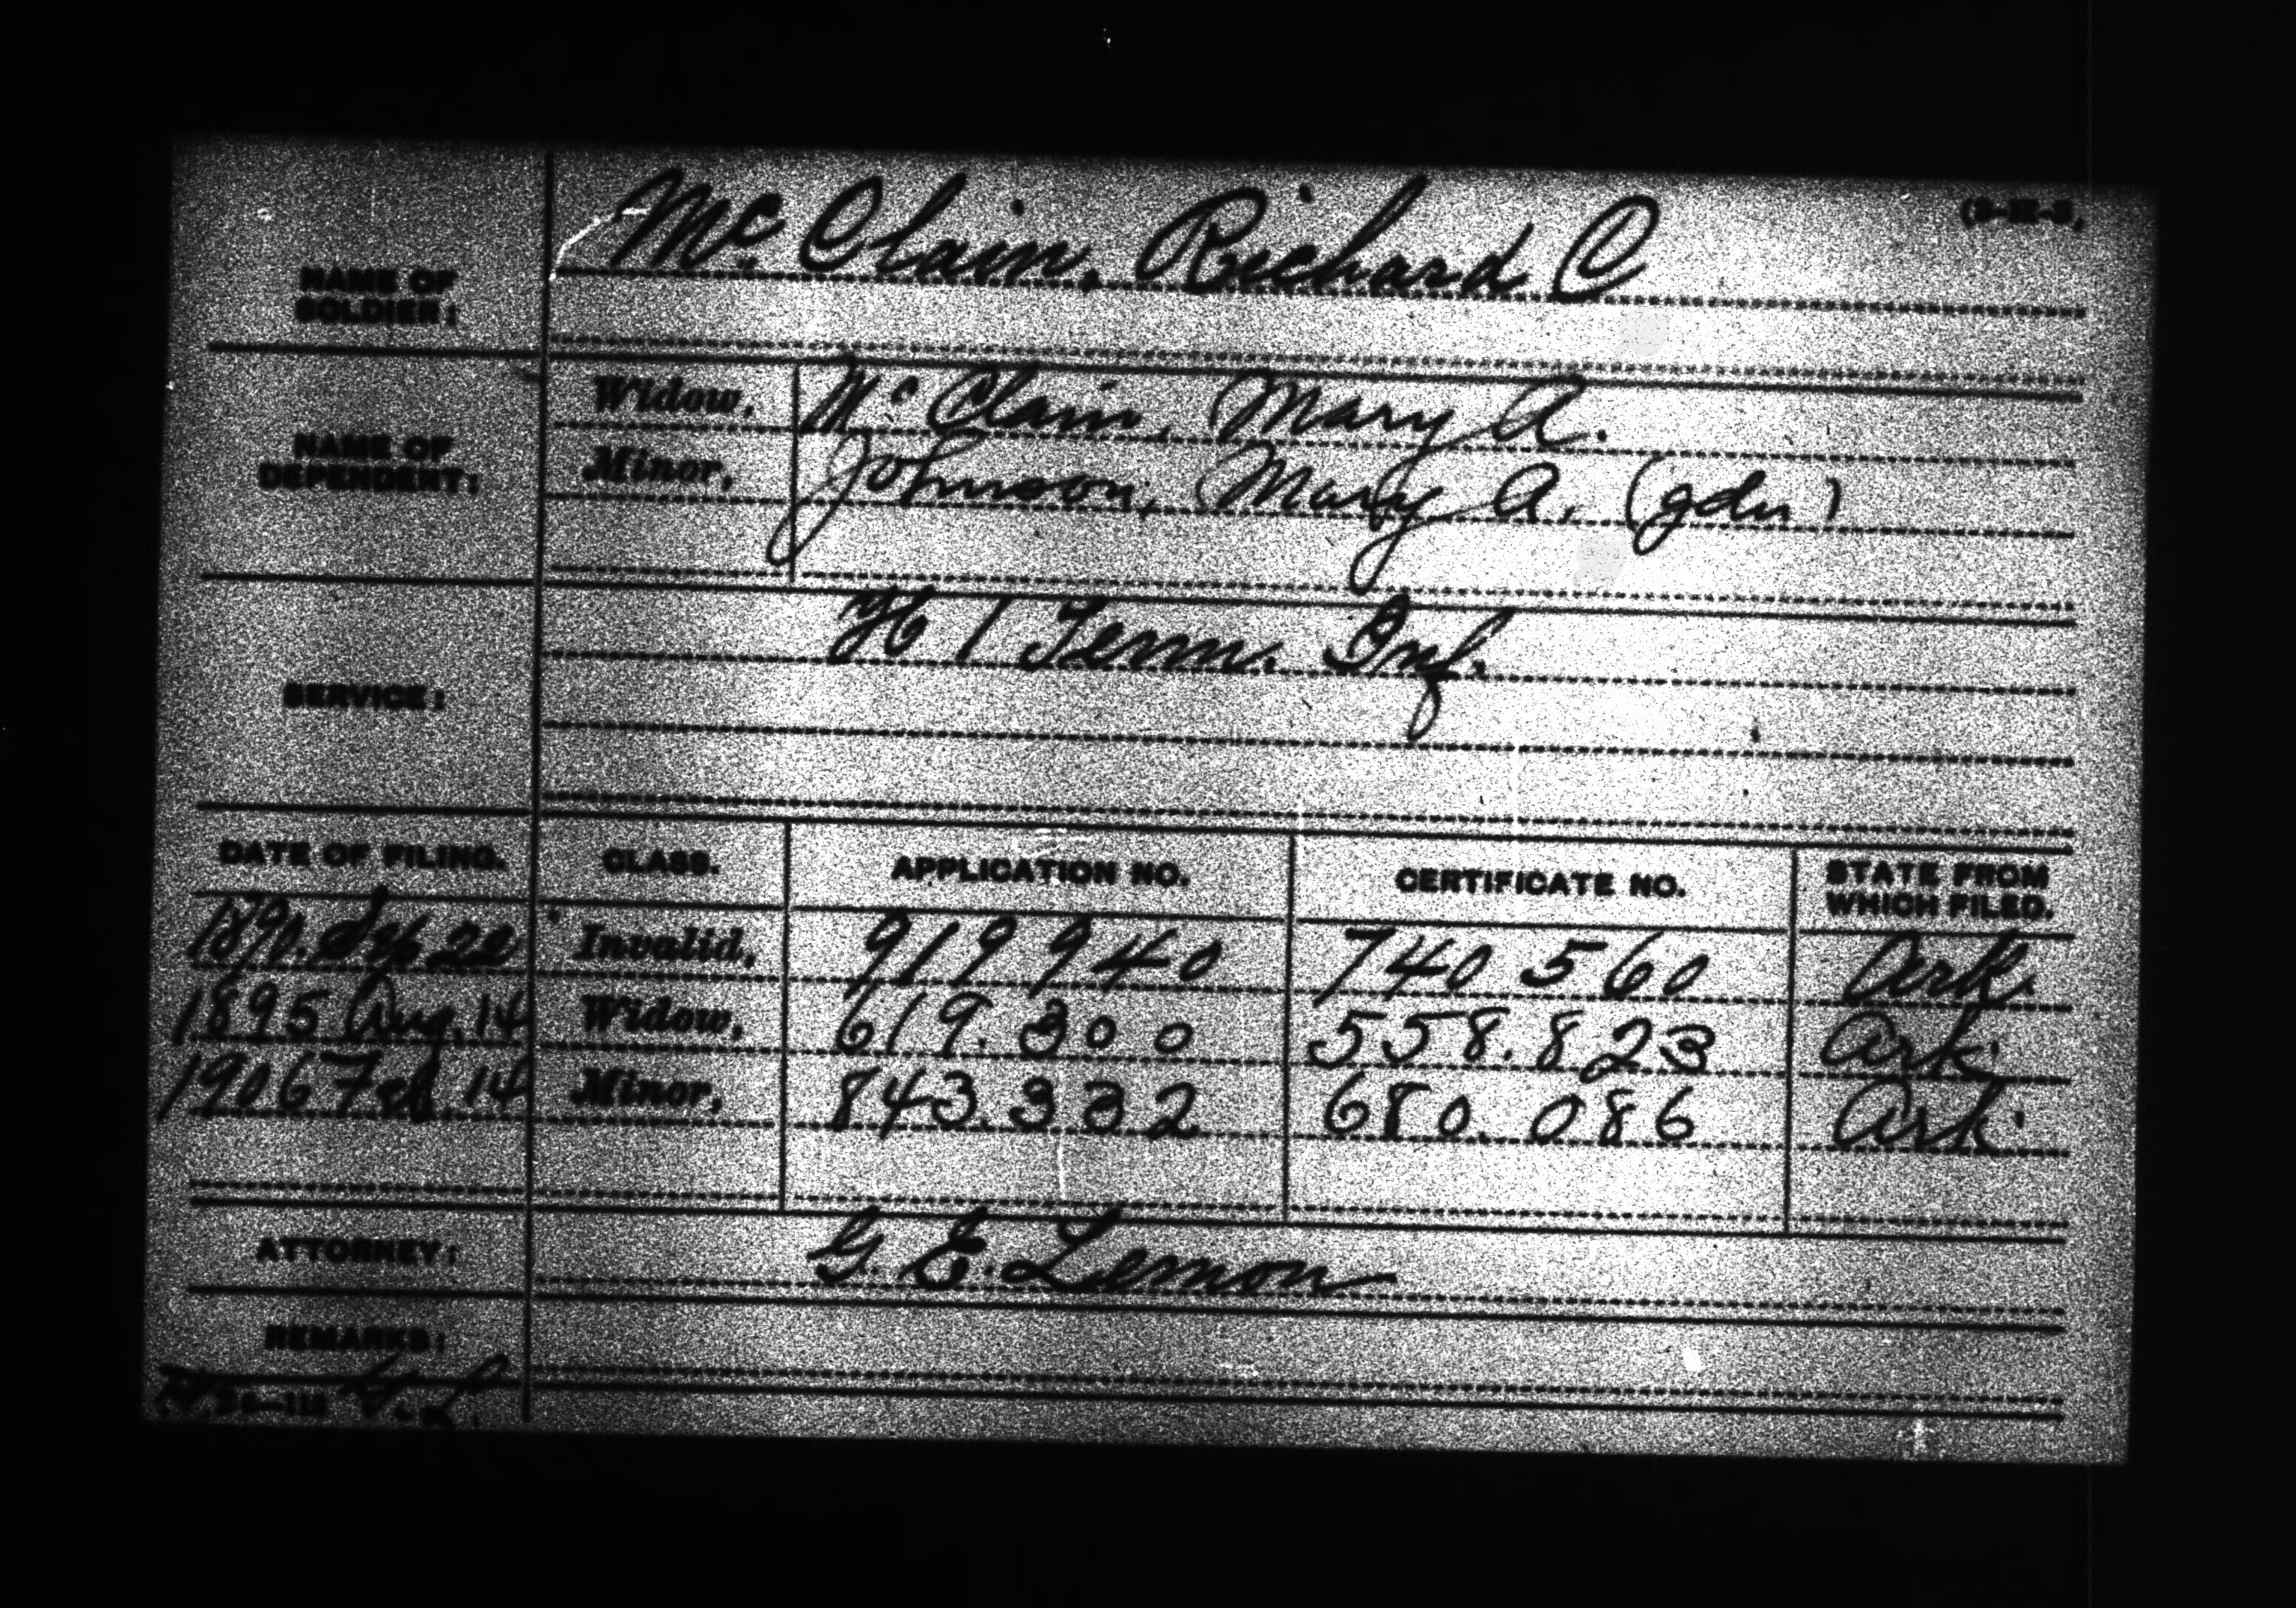 Mc Clain, Richard C
NAME OF
SOLDIER:
Widow, Mc Clain, Mary A.
NAME OF
DEPENDENT:
Minor, Johnson, Mary A. (gdn)
SERVICE:
H 1 Tenn. Inf.
DATE OF FILING. CLASS. APPLICATION NO. CERTIFICATE NO. STATE FROM WHICH FILED.
1890. 22 Invalid, 919940 740.560 Ark.
1895 Aug. 14 Widow, 619.300 558.823 Ark
1906 Feb. 14 Minor, 843.332 680.086 Ark
ATTORNEY: G. E. Lemon
REMARKS: